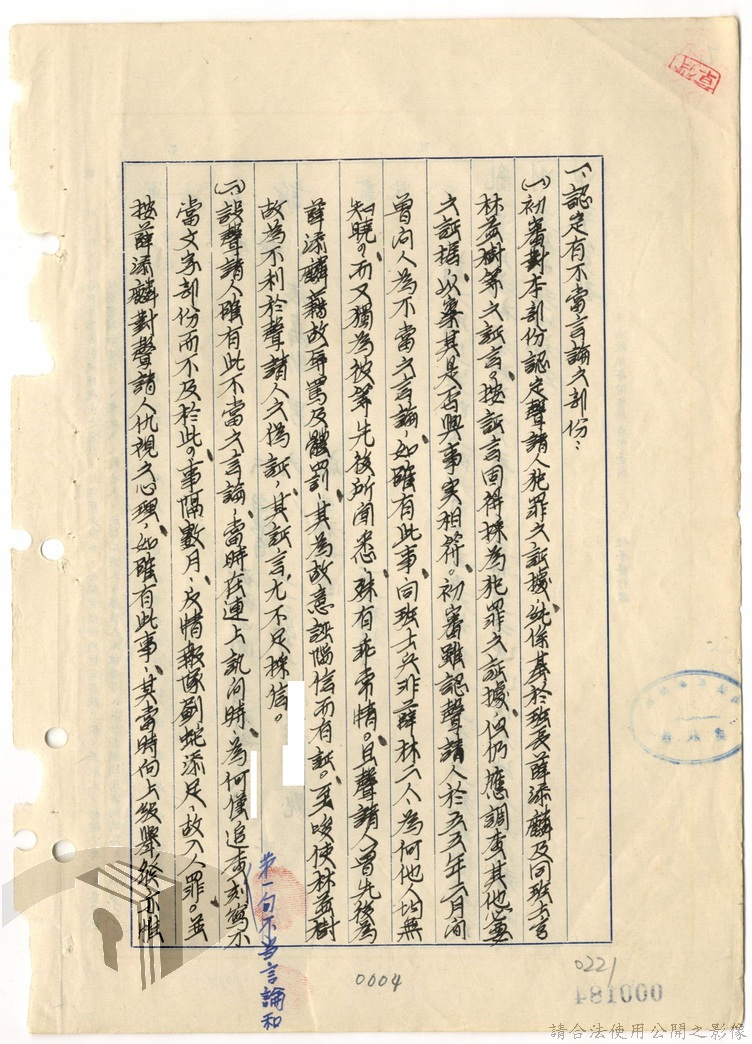 一、認定有不當言論之部份：
㈠初審對本部份認定聲請人犯罪之証據，純係基於班長薛添麟及同班士官
林益樹等之証言，按証言固得採為犯罪之証據，但仍應調查其他必要
之証據，以察其是否與事实相符。初審雖認聲請人於五五年六月間
曾向人為不當之言論，如確有此事，同班士兵非薛林二人，為何他人均無
知曉，而又獨為彼等先後所聞悉，殊有乖常情。且聲請人曾先後為
薛添麟藉故辱罵及體罰，其為故意誣陷信而有証。至唆使林益樹
故為不利於聲請人之偽証，其証言尤不足採信。
㈡設聲請人確有此不當之言論，當時在連上訊問時，為何僅追查刻寫不
第一句不当言論和
當文字部份而不及於此，事隔數月，反情報隊劃蛇添足，故入人罪。並
按薛添麟對聲請人仇視之心理，如確有此事，其當時向上級舉發亦惟
0004
0221
481000
請合法使用公開之影像